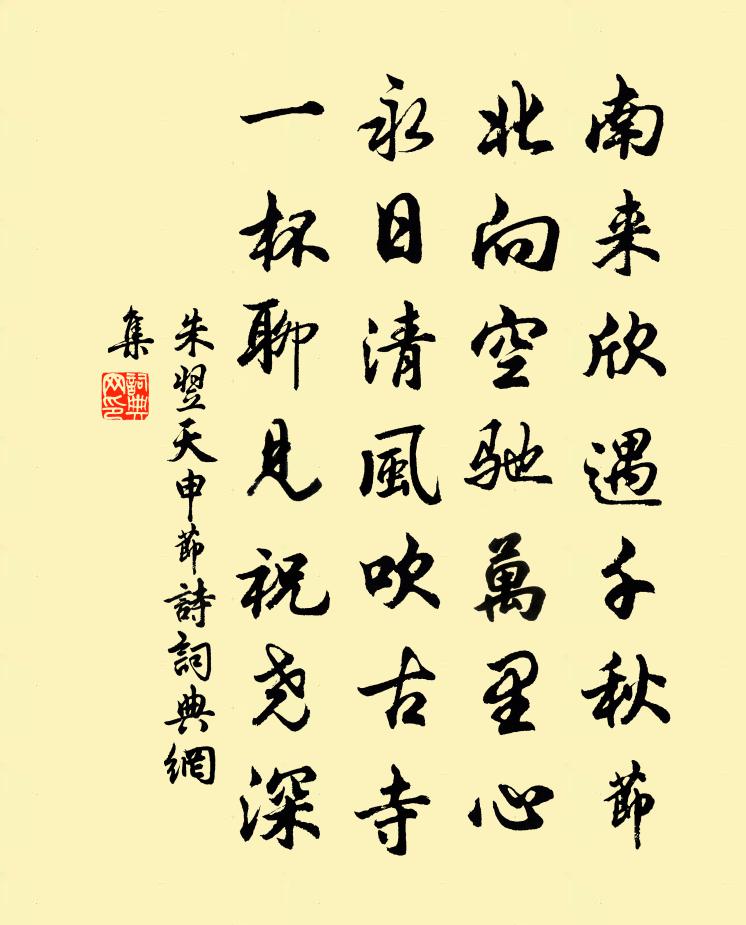 南来欣遇千秋節
北向空馳萬里心
永日清風吹古寺
一杯聊見祝尧深
朱翌天申節詩詞典網
集
詞典
网印